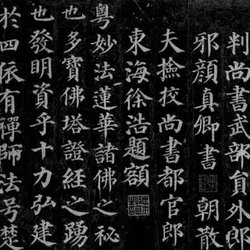 判尚書武部員外郎
邪顏真卿書 朝散
夫撿挍尚書都官郎
東海徐浩題額
粵妙法蓮華諸佛之秘
也多寶佛塔證經之踴
也發明資乎十力弘建
於四依有禪師法号楚